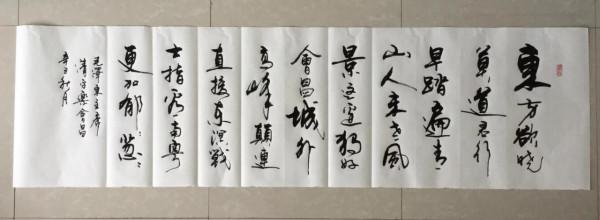 東方欲曉
莫道君行
早踏遍青
山人未老風
景這邊獨好
會昌城外
高峰顛連
直接東溟戰
士指看南粵
更加郁〻蔥〻
毛澤東主席
清平樂會昌
辛丑秋月